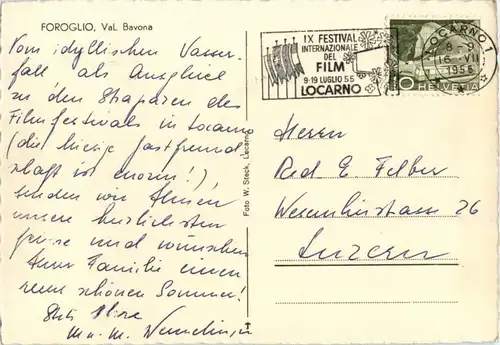 FOROGLIO, Val Bavona
Vom idyllischen Wasser-
fall als Ausgleich
zu den Strapazen des
Filmfestivals in Locarno
(die hiesige Gastfreund
schaft ist enorm!),
senden wir Ihnen
unsere herzlichsten
Grüsse und wünschen
Ihrer Familie einen
recht schönen Sommer!
Stets Ihre
M. u. M.
Foto W. Steck, Locarno
IX FESTIVAL
INTERNAZIONALE
DEL
FILM
9-19 LUGLIO 55
LOCARNO
LOCARNO 1
8-9
16.VII
1955
10 HELVETIA
Herrn
Red E. Felber
Wesemlinstrasse 26
Luzern